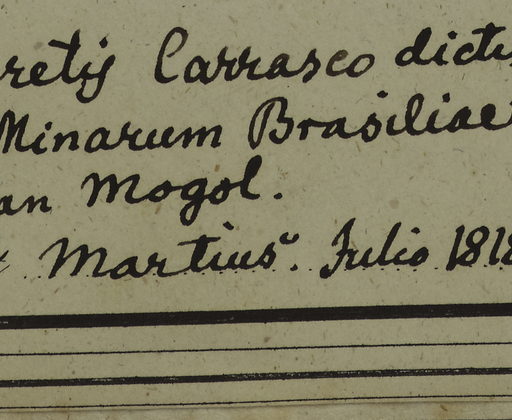 retis Carrasco dictis
Minarum Brasiliae
an Mogol.
Martius. Julio 1818